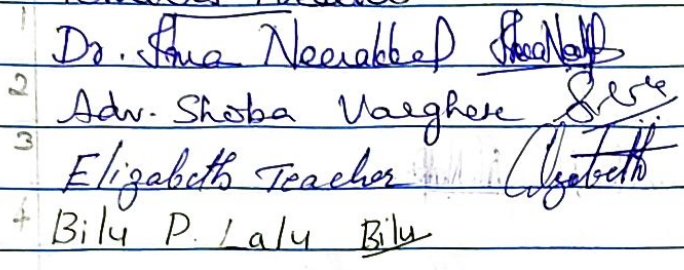 1 Dr. Shua Neerakkal
2 Adv. Shoba Varghese
3 Elizabeth Teacher Elizabeth
4 Bilu P. Lalu Bilu